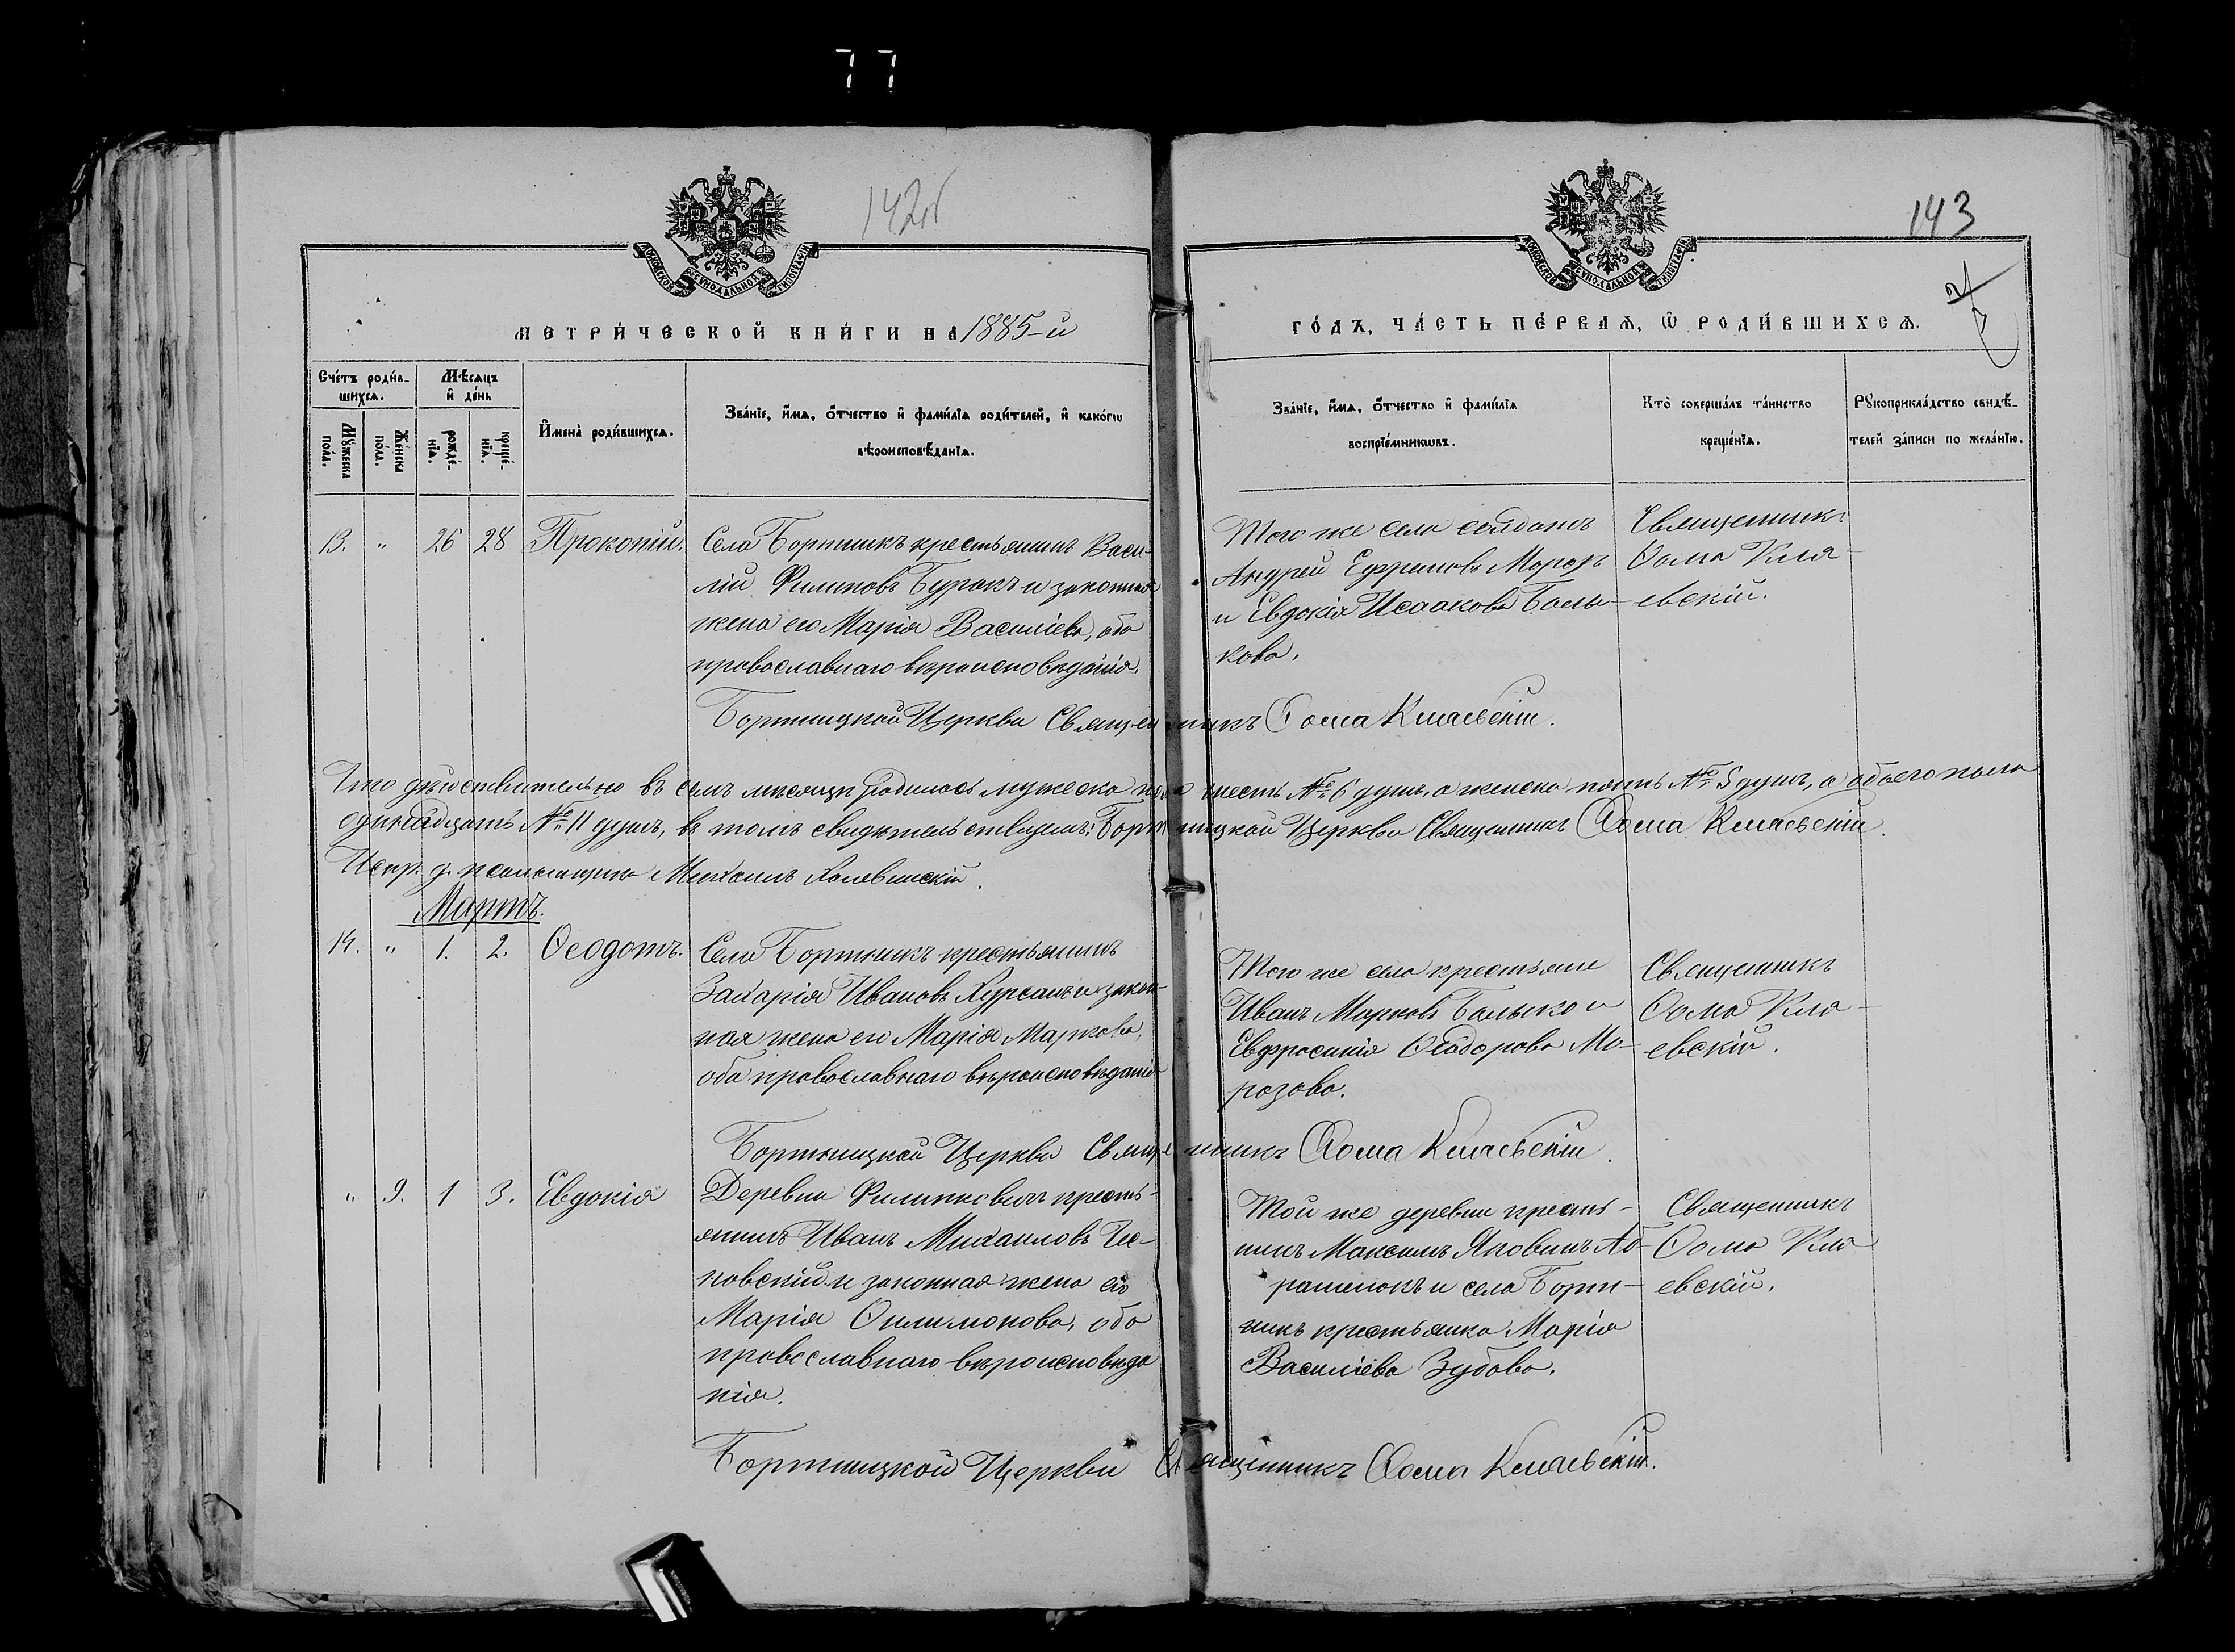 77
142об
143
МЕТРИ́ЧЕСКОЙ КНИ́ГИ НА 1885-й
ГО́ДЪ, ЧА́СТЬ ПЕ́РВАѦ, Ѡ РОДИ́ВШИХСѦ.
Сче́тъ роди́в-
шихсѧ.
Мѣ́сѧцъ
и҆ де́нь
Мꙋ́жеска
по́ла.
Же́нска
по́ла.
рожде́-
нїѧ.
креще́-
нїѧ.
И҆мена̀ роди́вшихсѧ.
Зва́нїе, и҆́мѧ, о҆́тчество и҆ фами́лїѧ роди́телей, и҆ како́гѡ
вѣроисповѣ́данїѧ.
Зва́нїе, и҆́мѧ, о҆́тчество и҆ фами́лїѧ
воспрїе́мникѡвъ.
Кто̀ соверша́лъ та́инство
креще́нїѧ.
Рꙋкоприкла́дство свидѣ́-
телей за́писи по жела́нїю.
13. " 26 28 Прокопій.
Села Бортникъ крестьянинъ Васи-
лій Филиповъ Буракъ и законная
жена его Марія Василіева, оба
православнаго вѣроисповѣданія.
Того же села солдатъ
Андрей Ефремовъ Морозъ
и Евдокія Исаакова Балы-
кова.
Священникъ
Ѳома Кля-
евскій.
Бортницкой Церкви Священникъ Ѳома Кляевскій.
Что дѣйствительно въ семъ мѣсяцѣ родилось мужеска пола шесть № 6 душъ, а женска пять № 5 душъ, а обоего пола
одинадцать № 11 душъ, въ томъ свидѣтельствуемъ: Бортницкой Церкви Священникъ Ѳома Кляевскій.
Испр. д. псаломщика Михаилъ
Мартъ.
14. " 1. 2. Ѳеодотъ.
Села Бортникъ крестьянинъ
Захарія Ивановъ Хурсанъ и закон-
ная жена его Марія Маркова,
оба православнаго вѣроисповѣданія
Того же села крестьяне
Иванъ Марковъ Балыко и
Евфросинія Ѳеодорова Мо-
розова.
Священникъ
Ѳома Кля-
евскій.
Бортницкой Церкви Священникъ Ѳома Кляевскій.
" 9. 1 3. Евдокія
Деревни Филипковичъ кресть-
янинъ Иванъ Михаиловъ
и законная жена его
Марія Филимонова, оба
православнаго вѣроисповѣда
нія.
Той же деревни кресть-
нинъ Максимъ Яковинъ Аб-
рамчокъ и села Борт-
никъ крестьянка Марія
Василіева Зубова.
Священникъ
Ѳома Кля
евскій.
Бортницкой Церкви Священникъ Ѳома Кляевскій.